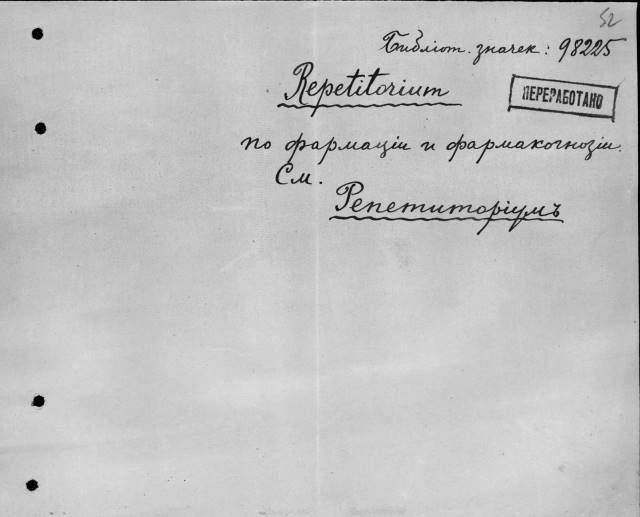 52
Библіот. значек: 98225
Repetitorium
ПЕРЕРАБОТАНО
по фармаціи и фармакогнозіи.
См.
Репетиторіумъ